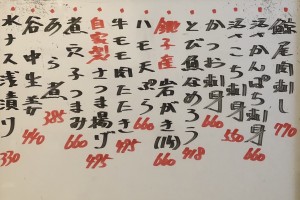 鯨尾肉刺し 770
活〆かんぱち刺身
活〆さごし刺身 550
かつお刺身 660
とび魚なめろう 418
銚子産 岩がき(1ヶ) 660
ハモ天ぷら 660
牛モモ肉たたき 495
自家製さつま揚げ 495
煮穴子つまみ 660
あら煮 385
谷中生姜 440
水ナス浅漬け 330